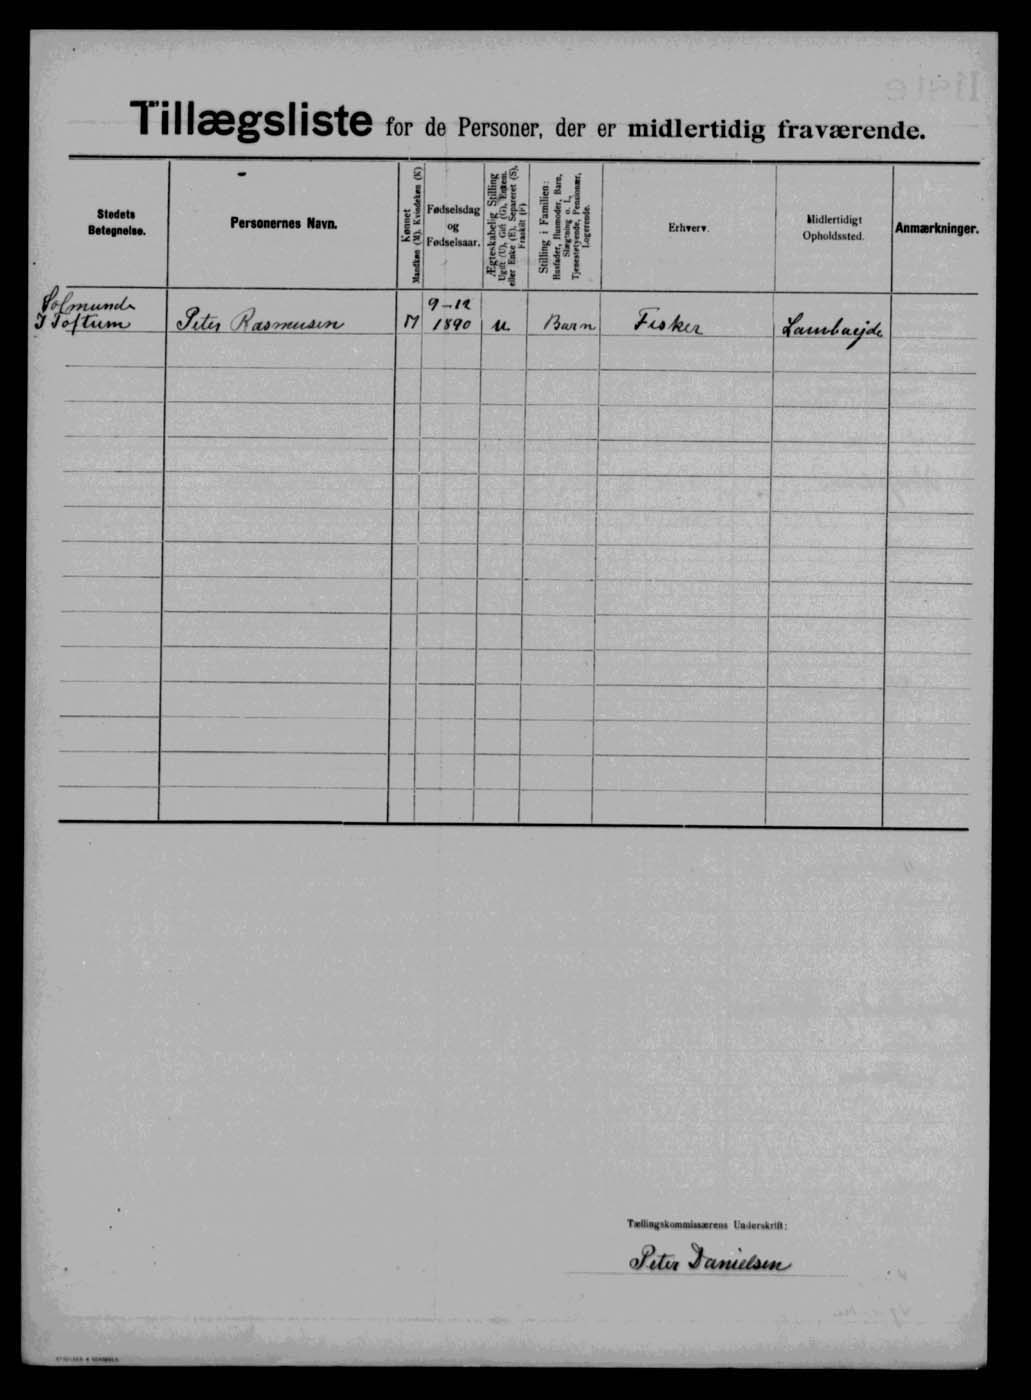 Tillægsliste for de Personer, der er midlertidig fraværende.
Stedets Betegnelse.
Personernes Navn.
Kønnet
Mandkøn (M). Kvindekøn (K)
Fødselsdag og Fødselsaar.
Ægteskabelig Stilling
Ugift (U), Gift (G), Enkem. eller Enke (E), Separeret (S), Fraskilt (F)
Stilling i Familien:
Husfader, Husmoder, Barn, Slægtning o. l., Tjenestetyende, Pensionær, Logerende.
Erhverv.
Midlertidigt Opholdssted.
Anmærkninger.
Solmunde
I Toftum
Peter Rasmusen
M
9-12
1890
U.
Barn
Fisker
Lambaejde
Tællingskommissærens Underskrift:
Peter Danielsen